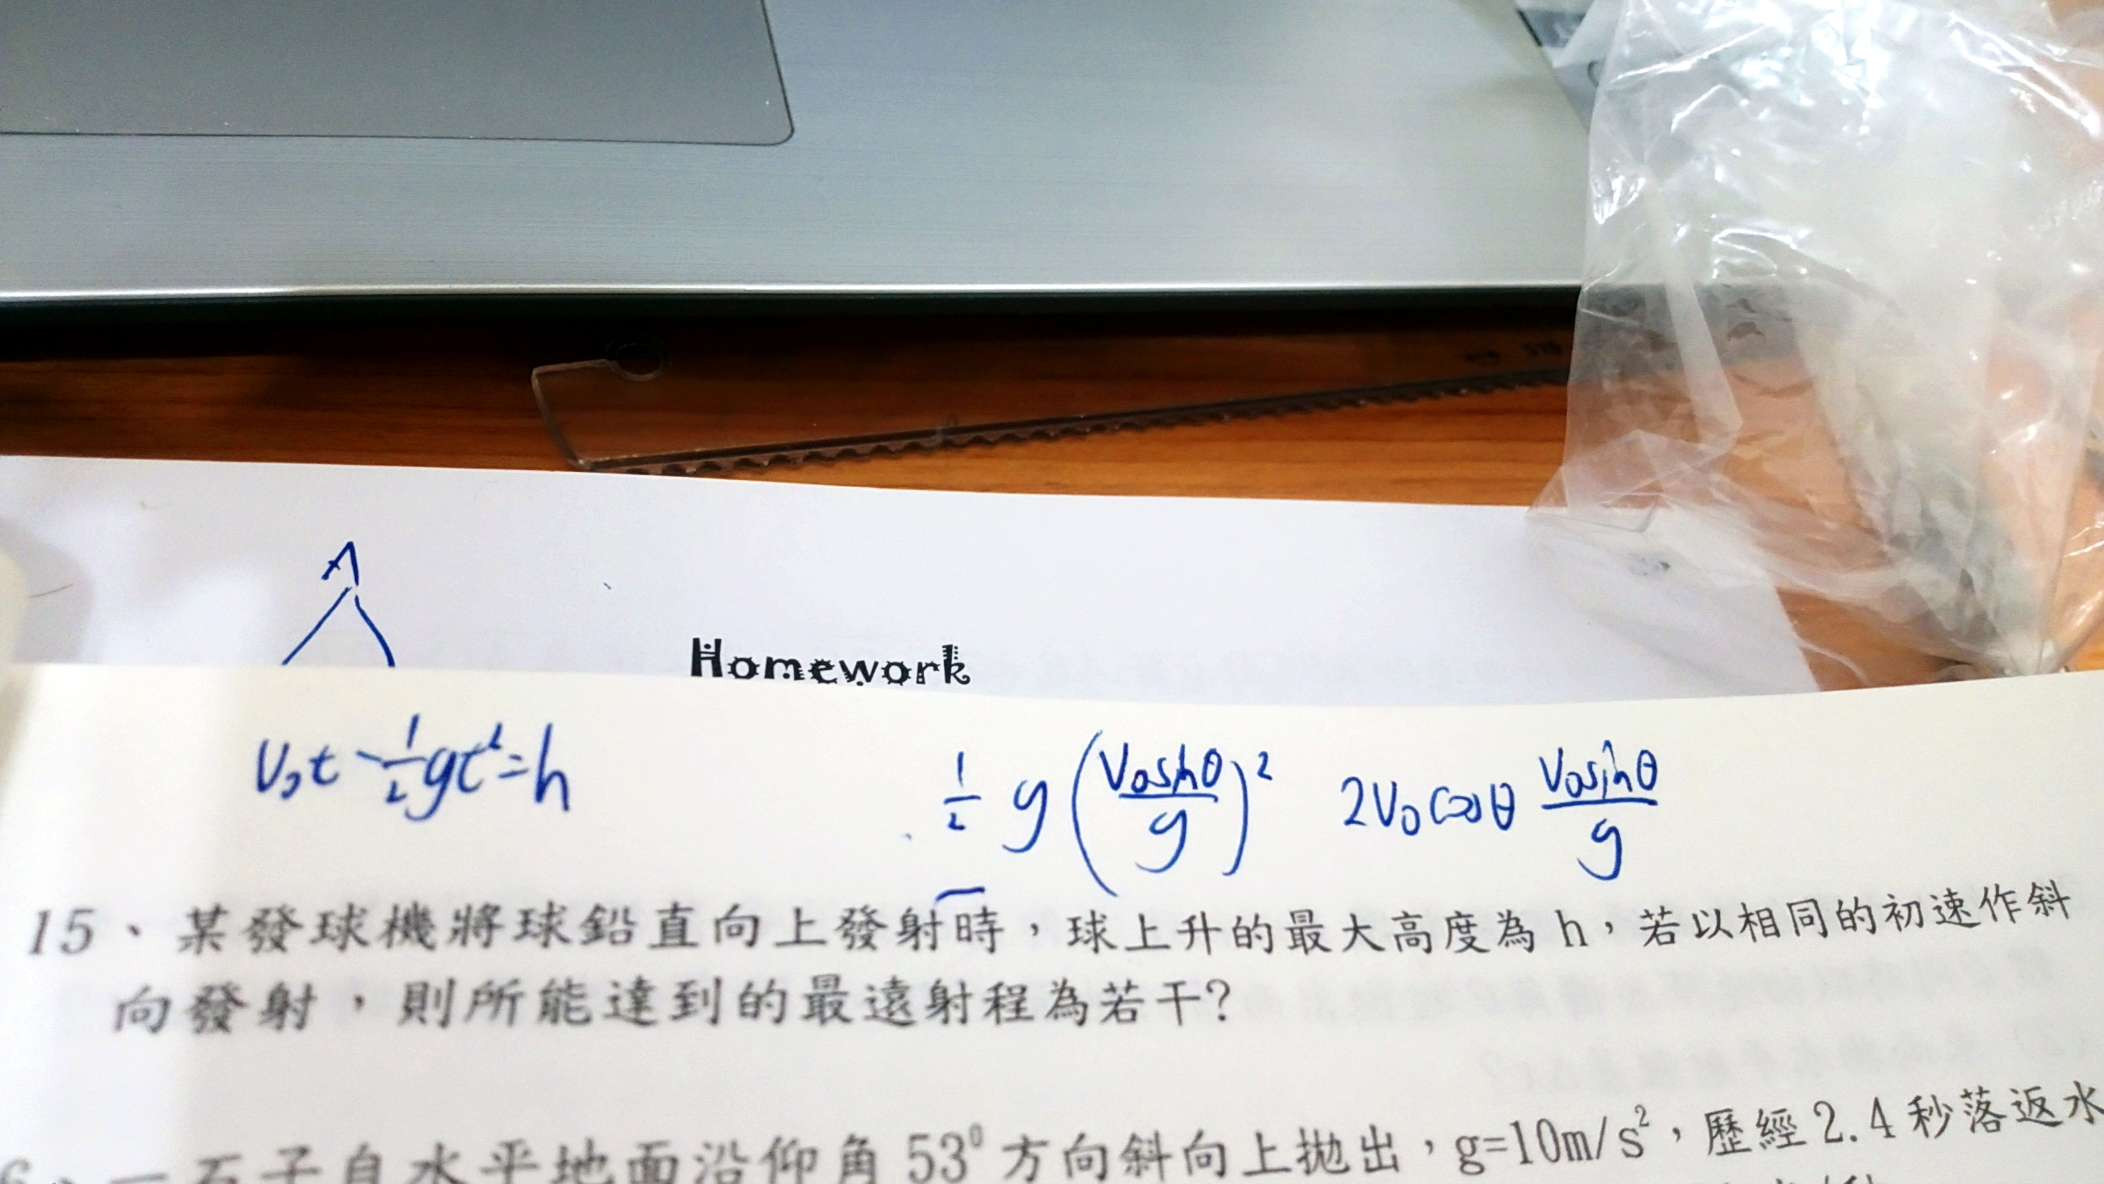 A
Homework
V₀t - 1/2 gt² = h
1/2 g (V₀sinθ/g)² 2V₀cosθ V₀sinθ/g
15、某發球機將球鉛直向上發射時，球上升的最大高度為 h，若以相同的初速作斜
向發射，則所能達到的最遠射程為若干?
一石子自水平地面沿仰角 53⁰ 方向斜向上拋出，g=10m/s²，歷經 2.4 秒落返水